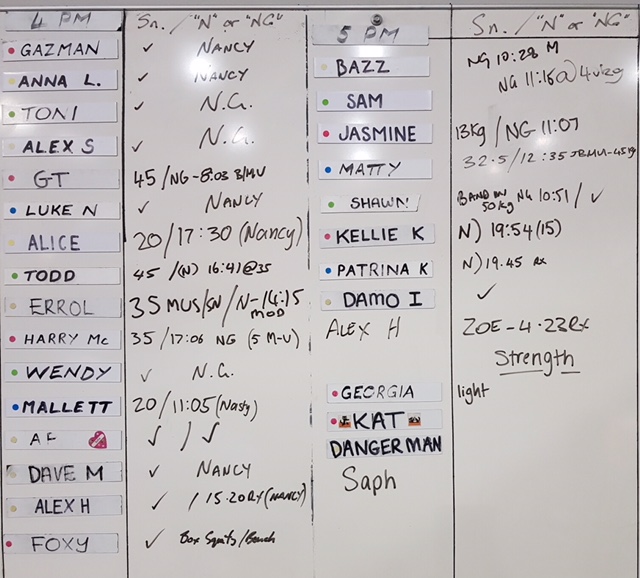 4 PM Sn. / "N" or "NG"
GAZMAN ✓ NANCY
ANNA L. ✓ NANCY
TONI ✓ N.G.
ALEX S ✓ N.G.
GT 45 / NG - 8:03 B/MU
LUKE N ✓ NANCY
ALICE 20/17:30 (Nancy)
TODD 45 / (N) 16:41 @35
ERROL 35 MUS/SN / N-14:15 MOD
HARRY Mc 35 /17:06 NG (5 M-U)
WENDY ✓ N.G.
MALLETT 20 / 11:05 (Nasty)
AF ✓ / ✓
DAVE M ✓ NANCY
ALEX H ✓ / 15.20 RX (NANCY)
FOXY ✓ Box Squats / Bench
5 PM Sn. / "N" or "NG"
BAZZ NG 10:28 M
SAM NG 11:16 @ 4
JASMINE 13kg / NG 11:07
MATTY 32.5 / 12:35
SHAWN 50kg NG 10:51 / ✓
KELLIE K N) 19:54 (15)
PATRINA K N) 19.45 Rx
DAMO I ✓
ALEX H ZOE - 4.23 Rx
Strength
GEORGIA light
KAT
DANGERMAN
Saph